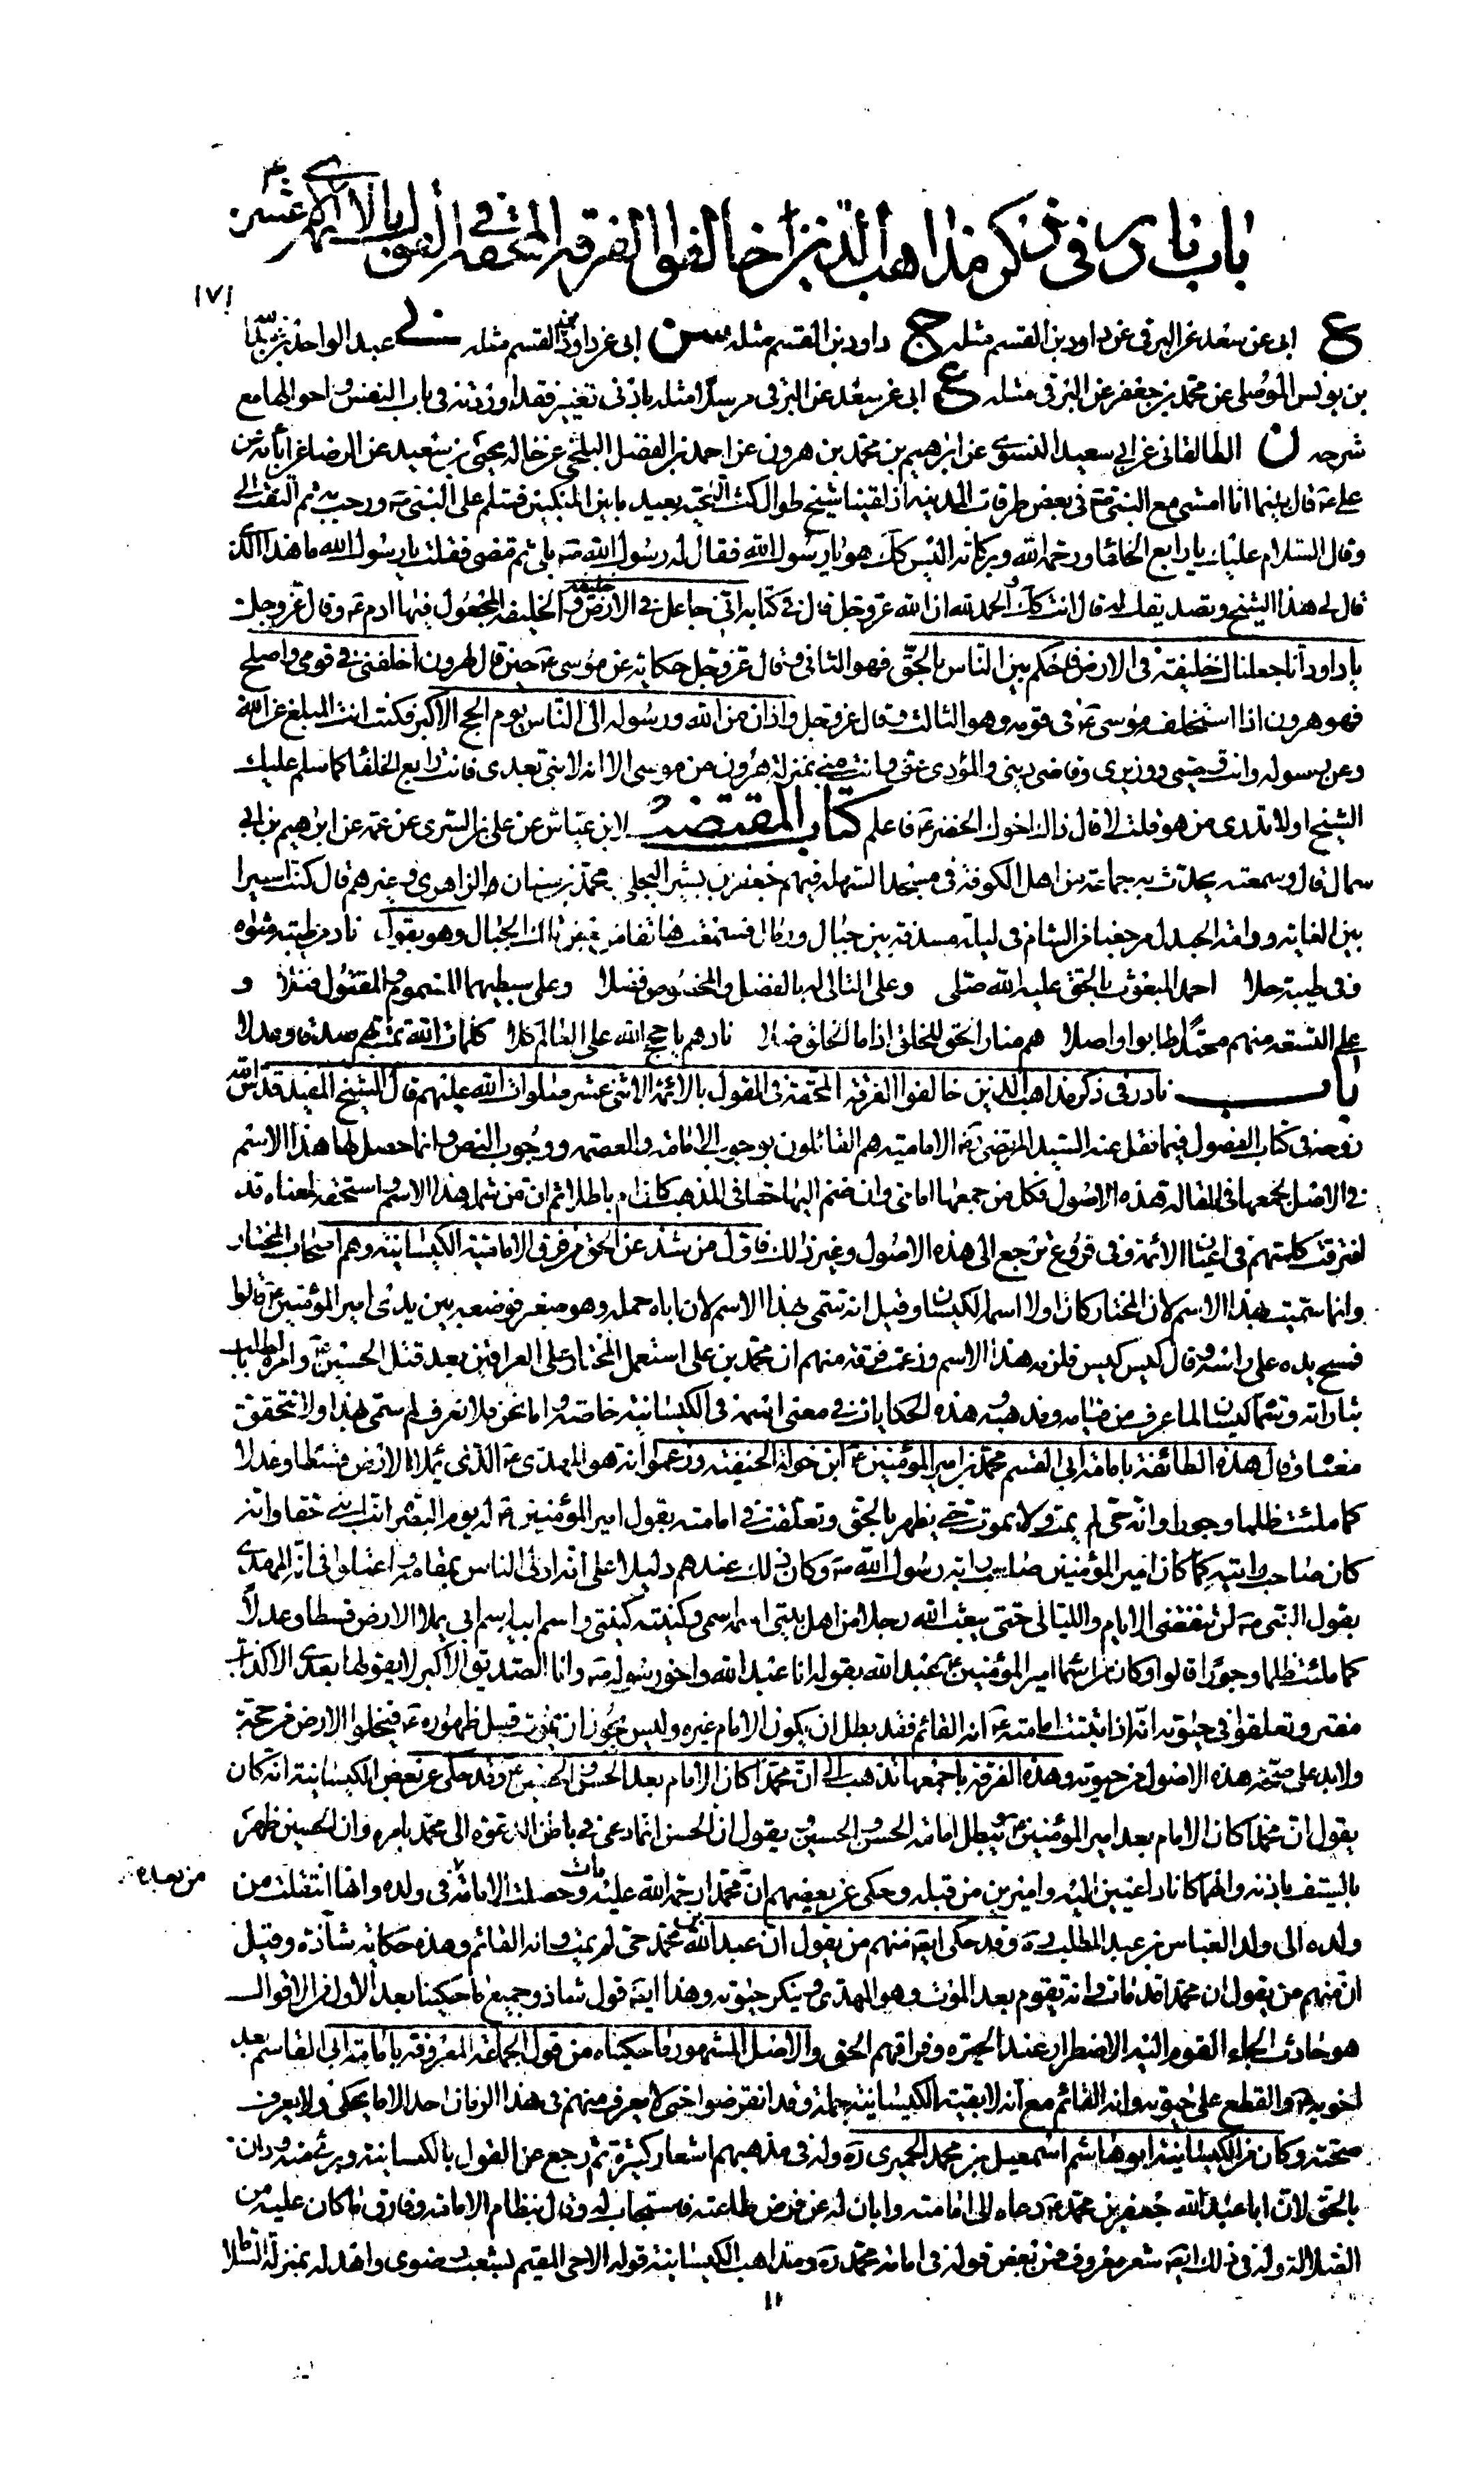 باب نادر في ذكر مذاهب الذين خالفوا الفرقة المحقة في القول بالائمة الاثنى عشر
١٧١
ع ابى عن سعد عن البرقى عن داود بن القسم مثله ج داود بن القسم مثله سن ابى عن داود بن القسم مثله نى عبد الواحد بن عبد الله
بن يونس الموصلى عن محمد بن جعفر عن البرقى مثله ع ابى عن سعد عن البرقى مرسلا مثله بادنى تغيير فقد اوردته فى باب النفس واحوالها مع
شرحه ن الطالقانى عن ابى سعيد النسوى عن ابرهيم بن محمد بن هرون عن احمد بن الفضل البلخى عن خاله يحيى بن سعيد عن الرضا عن ابائه عن
على ع قال بينما انا امشى مع النبى ص فى بعض طرقات المدينه اذ لقينا شيخ طوال كث اللحيه بعيد ما بين المنكبين فسلم على النبى ص ورحب به ثم التفت الى
وقال السلام عليك يا رابع الخلفا ورحمة الله وبركاته اليس كك هو يا رسول الله فقال له رسول الله ص بلى ثم مضى فقلت يا رسول الله ما هذا الذى
قال لى هذا الشيخ وتصديقك له قال انت كك والحمد لله ان الله عز وجل قال فى كتابه انى جاعل فى الارض خليفة والخليفه المجعول فيها ادم ع وقال عز وجل
يا داود انا جعلناك خليفة فى الارض فاحكم بين الناس بالحق فهو الثانى وقال عز وجل حكاية عن موسى ع حين قال لهرون اخلفنى فى قومى واصلح
فهو هرون اذا استخلفه موسى ع فى قومه وهو الثالث وقال عز وجل واذان من الله ورسوله الى الناس يوم الحج الاكبر فكنت انت المبلغ عن الله
وعن رسوله وانت وصيى ووزيرى وقاضى دينى والمؤدى عنى وانت منى بمنزلة هرون من موسى الا انه لا نبى بعدى فانت رابع الخلفا كما سلم عليك
الشيخ اولا تدرى من هو قلت لا قال ذاك اخوك الخضر ع فاعلم كتاب المقتضب لابن عياش عن على بن السرى عن عمه عن ابرهيم بن ابى
سمال قال وسمعته يحدث به جماعة من اهل الكوفة فى مسجد السهله فيهم جعفر بن بشير البجلى ومحمد بن سنان الزاهرى وغيرهم قال كنت اسيرا
بين الغابه ودومة الجندل مرجعنا من الشام فى ليلة مسدفه بين جبال ورمال فسمعت هاتفا من بعض تلك الجبال وهو يقول ناد من طيبة مثواه
وفى طيبة حلا احمد المبعوث بالحق عليه الله صلى وعلى التالى له بالفضل والمخصوص فضلا وعلى سبطيهما المسموم والمقتول قتلا و
على التسعة منهم محتدا طابوا واصلا هم منار الحق للخلق اذا ما الخلق ضلا نادهم يا حجج الله على العالم كلا كلمات الله تمت بهم صدقا وعدلا
باب نادر فى ذكر مذاهب الذين خالفوا الفرقة المحقة فى القول بالائمة الاثنى عشر صلوات الله عليهم قال الشيخ المفيد قدس الله
روحه فى كتاب الفصول فيما نقل عنه السيد المرتضى ره الامامية هم القائلون بوجوب الامامة والعصمة ووجوب النص وانما حصل لها هذا الاسم
فى الاصل لجمعها فى المقالة هذه الاصول فكل من جمعها امامى وان ضم اليها حقا فى المذهب كان ام باطلا ثم ان من شمله هذا الاسم واستحقه لمعناه قد
افترقت كلمتهم فى اعيان الائمة وفى فروع ترجع الى هذه الاصول وغير ذلك فاول من شذ عن الحق من فرق الامامية الكيسانية وهم اصحاب المختار
وانما سميت بهذا الاسم لان المختار كان اولا اسمه الكيسان وقيل انه تسمى بهذا الاسم لان اباه حمله وهو صغير فوضعه بين يدى امير المؤمنين ع قالوا
فمسح يده على راسه وقال كيس كيس فلزمه هذا الاسم وزعمت فرقة منهم ان محمد بن على استعمل المختار على العراقين بعد قتل الحسين ع وامره بالطلب
بثاراته وسماه كيسان لما عرف من قيامه ومذهبه وهذه الحكايات فى معنى اسمه فى الكيسانية خاصة واما نحن فلا نعرف لم سمى بهذا ولا نتحقق
معناه وقال هذه الطائفة بامامة ابى القسم محمد بن امير المؤمنين ع ابن خولة الحنفية وزعموا انه هو المهدى ع الذى يملا الارض قسطا وعدلا
كما ملئت ظلما وجورا وانه حى لم يمت ولا يموت حتى يظهر بالحق وتعلقت فى امامته بقول امير المؤمنين ع له يوم البصرة انت ابنى حقا وانه
كان صاحب رايته كما كان امير المؤمنين صاحب راية رسول الله ص وكان ذلك عندهم دليلا على انه اولى الناس بمقامه واعتلوا فى انه المهدى
بقول النبى ص لن تنقضى الايام والليالى حتى يبعث الله رجلا من اهل بيتى اسمه اسمى وكنيته كنيتى واسم ابيه اسم ابى يملا الارض قسطا وعدلا
كما ملئت ظلما وجورا قالوا وكان من اسماء امير المؤمنين ع عبد الله بقوله انا عبد الله واخو رسوله ص وانا الصديق الاكبر لا يقولها بعدى الا كذاب
مفتر وتعلقوا فى حيوته انه اذا ثبتت امامته ع انه القائم فقد بطل ان يكون الامام غيره وليس يجوز ان يموت قبل ظهوره ع فيخلوا الارض من حجة
ولا بد على صحة هذه الاصول من حيوته وهذه الفرقة باجمعها تذهب الى ان محمدا كان الامام بعد الحسن والحسين ع وقد حكى عن بعض الكيسانية انه كان
يقول ان محمدا كان الامام بعد امير المؤمنين ع ويبطل امامة الحسن والحسين ويقول ان الحسن انما دعى فى باطن الدعوة الى محمد بامره وان الحسين ظهر
بالسيف باذنه وانهما كانا داعيين اليه واميرين من قبله وحكى عن بعضهم ان محمدا رحمة الله عليه مات وحصلت الامامة فى ولده وانها انتقلت من
من بعده
ولده الى ولد العباس بن عبد المطلب وقد حكى ايض منهم من يقول ان عبد الله بن محمد حى لم يمت وانه القائم وهذه حكاية شاذة وقيل
ان منهم من يقول ان محمدا قد مات وانه يقوم بعد الموت وهو المهدى وينكر حيوته وهذا ايض قول شاذ وجميع ما حكينا بعد الاول من الاقوال
هو حادث الجاء القوم اليه الاضطرار عند الحيرة وفراقهم الحق والاصل المشهور ما حكيناه من قول الجماعة المعروفة بامامة ابى القاسم بعد
اخويه ع والقطع على حيوته وانه القائم مع انه لا بقية للكيسانية جملة وقد انقرضوا حتى لا يعرف منهم فى هذا الزمان احد الا ما يحكى ولا يعرف
صحته وكان من الكيسانية ابو هاشم اسمعيل بن محمد الحميرى ره وله فى مذهبهم اشعار كثيرة ثم رجع عن القول بالكيسانية وبرئ منه ودان
بالحق لان ابا عبد الله جعفر بن محمد ع دعاه الى امامته وابان له عن فرض طاعته فاستجاب له وقال بنظام الامامة وفارق ما كان عليه من
الضلالة وله فى ذلك ايض شعر معروف ومن بعض قوله فى امامة محمد ره ومذاهب الكيسانية قوله الا حى المقيم بشعب رضوى واهد له بمنزلة السلاما